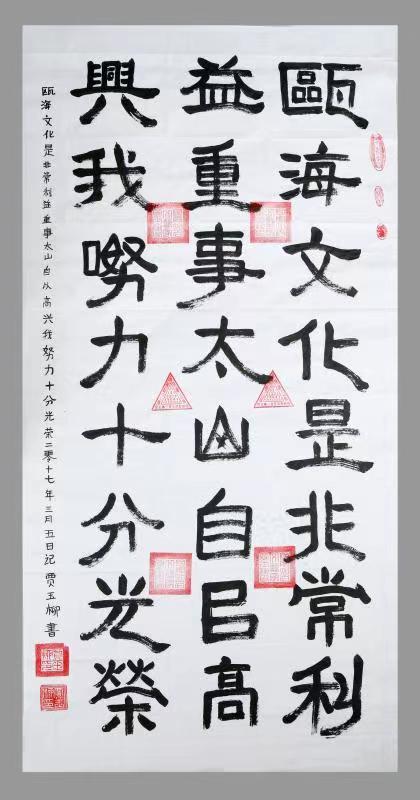 甌海文化是非常利
益重事太山自㠯高
興我努力十分光榮
瓯海文化是非常利益重事太山自从高兴我努力十分光荣二零十七年三月五日记 贾玉柳書